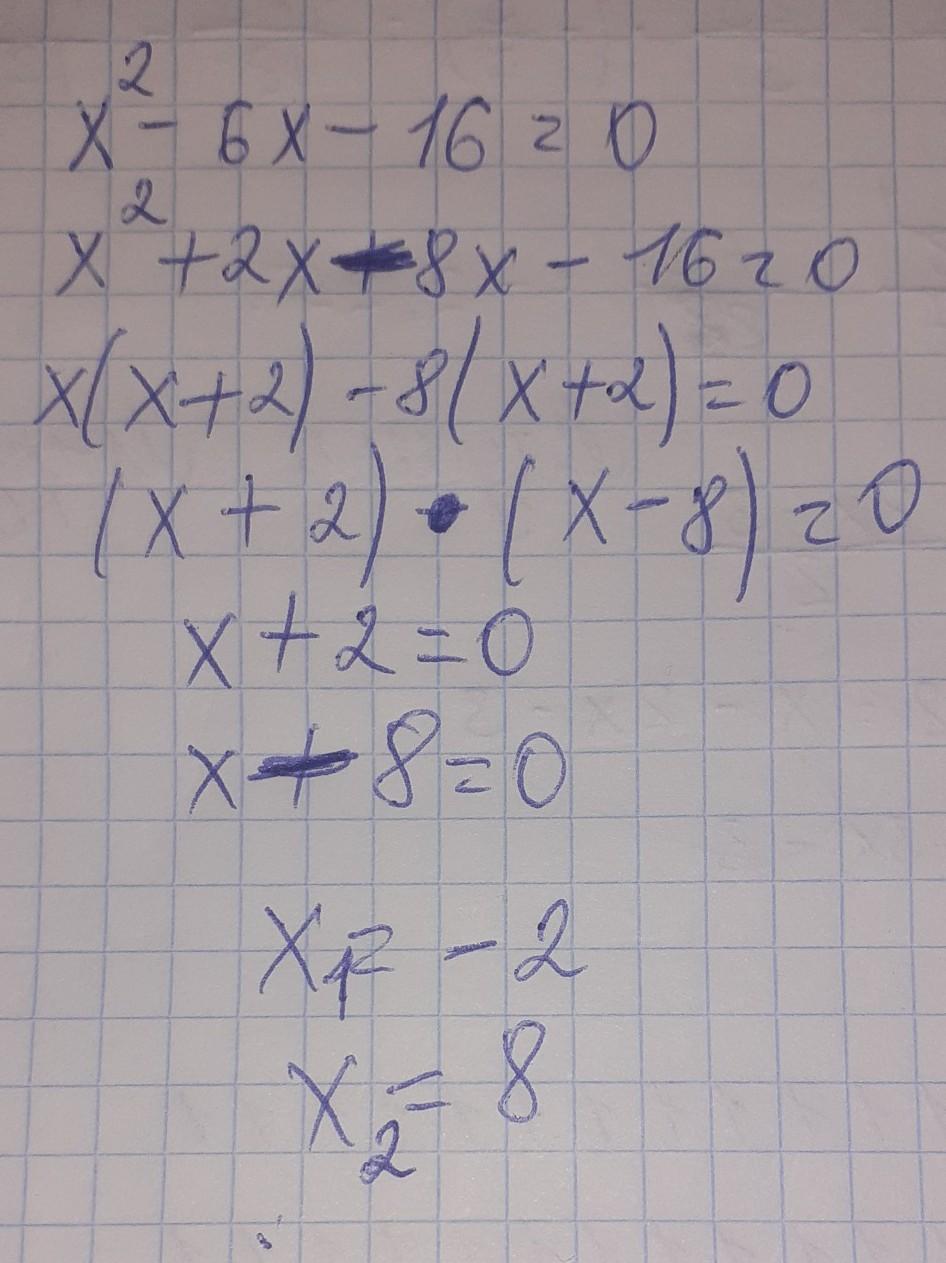 x² - 6x - 16 = 0
x² + 2x - 8x - 16 = 0
x(x+2) - 8(x+2) = 0
(x + 2) • (x - 8) = 0
x + 2 = 0
x - 8 = 0
x₁ = - 2
x₂ = 8